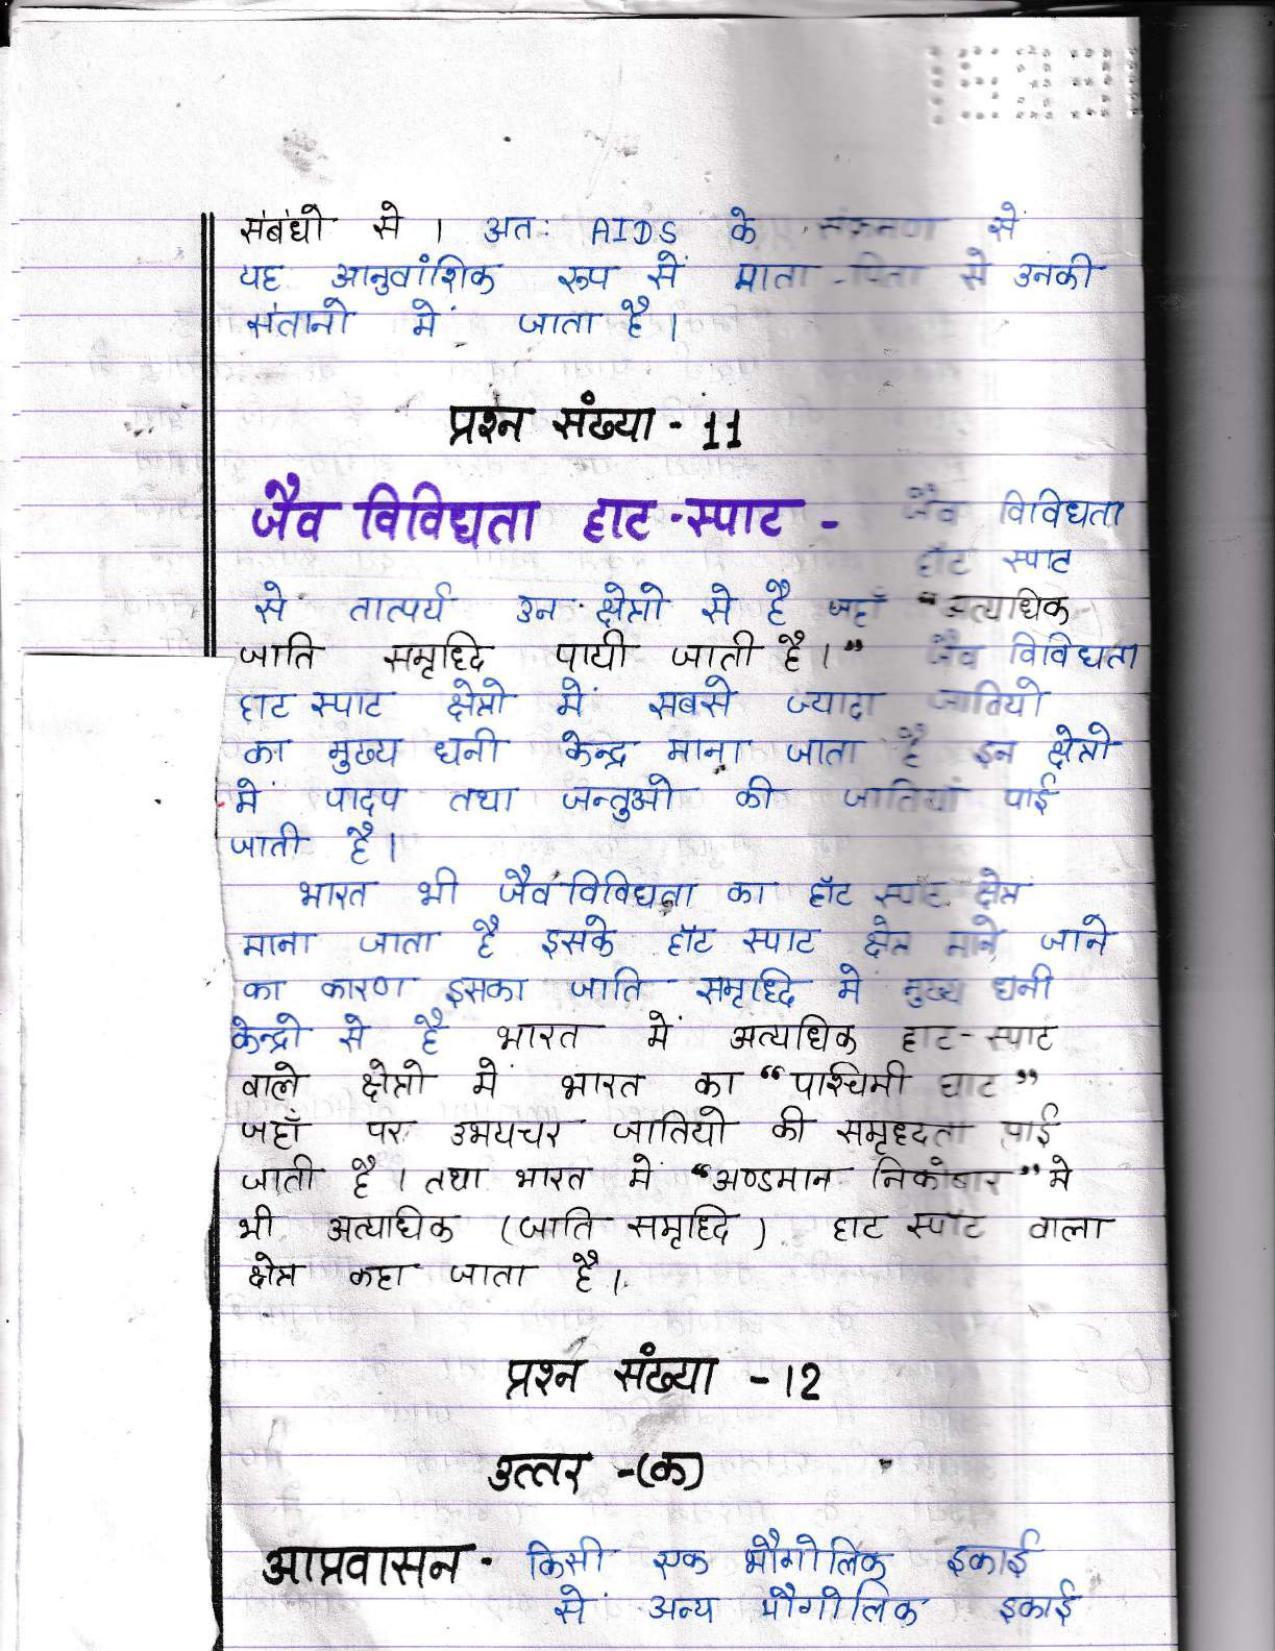 संबंधो से । अतः AIDS के संक्रमण से
यह आनुवांशिक रूप से माता-पिता से उनकी
संतानो में जाता है।
प्रश्न संख्या - 11
जैव विविधता हाट-स्पाट - जैव विविधता
हॉट स्पाट
से तात्पर्य उन क्षेत्रो से है जहाँ “अत्यधिक
जाति समृध्दि पायी जाती है।” जैव विविधता
हाट स्पाट क्षेत्रो में सबसे ज्यादा जातियो
का मुख्य धनी केन्द्र माना जाता है इन क्षेत्रो
में पादप तथा जन्तुओ की जातियां पाई
जाती है।
भारत भी जैव विविधता का हॉट स्पाट क्षेत्र
माना जाता है इसके हॉट स्पाट क्षेत्र माने जाने
का कारण इसका जाति समृध्दि में मुख्य धनी
केन्द्रो से है भारत में अत्यधिक हाट-स्पाट
वाले क्षेत्रो में भारत का “पाश्चिमी घाट”
जहाँ पर उभयचर जातियो की समृध्दता पाई
जाती है । तथा भारत में “अण्डमान निकोबार” मे
भी अत्याधिक (जाति समृध्दि) हाट स्पॉट वाला
क्षेत्र कहा जाता है।
प्रश्न संख्या - 12
उत्तर -(क)
आप्रवासन - किसी एक भौगोलिक इकाई
से अन्य भौगोलिक इकाई